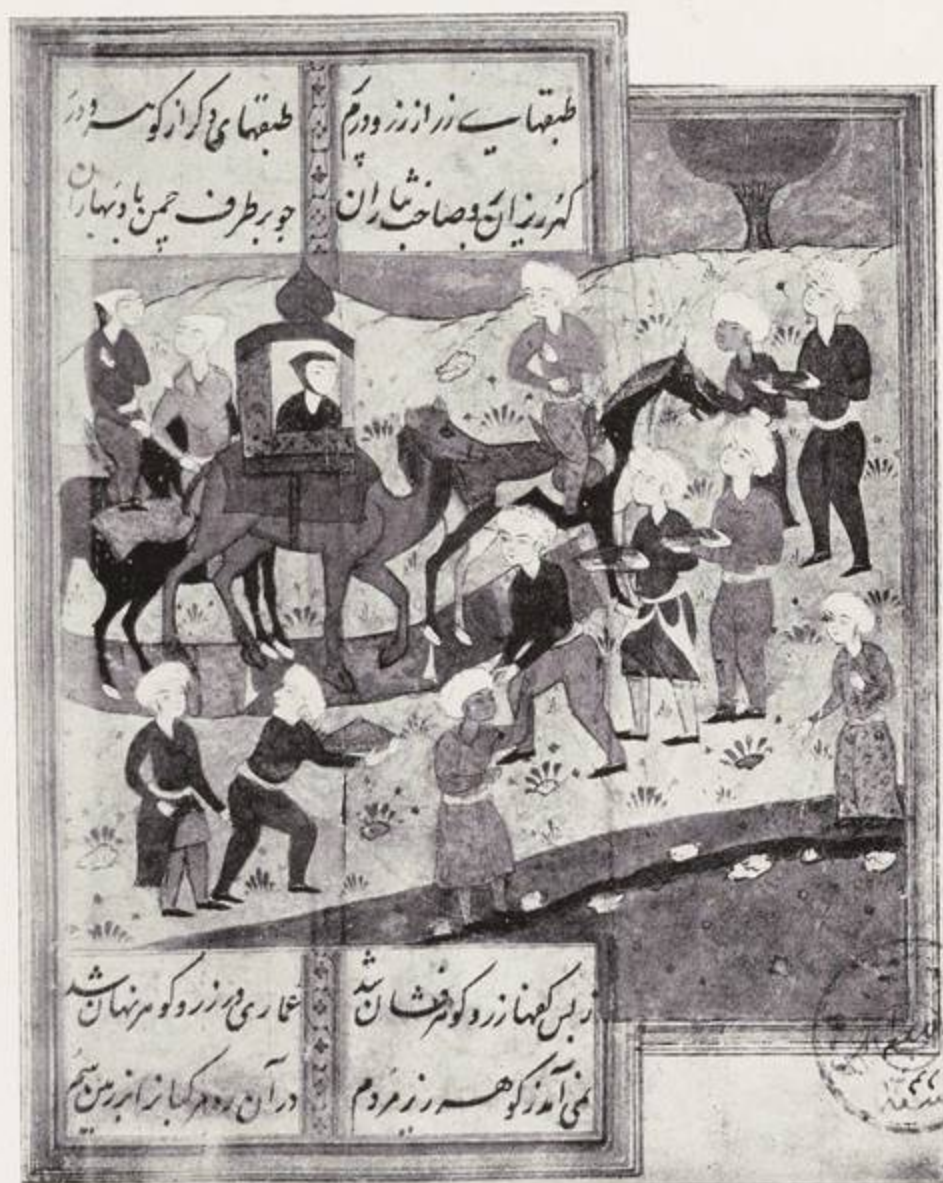 طبقهای زر از زر و درم پر طبقهای دکر از کوهر و در
کهر ریزان برو صاحب نثاران چو بر طرف چمن باد بهاران
ز بس کفها زر و کوهر فشان شد عماری در زر و کوهر نهان شد
نمی آمد ز کوهر ریز مردم در آن ره مرکبانرا بر زمین سم